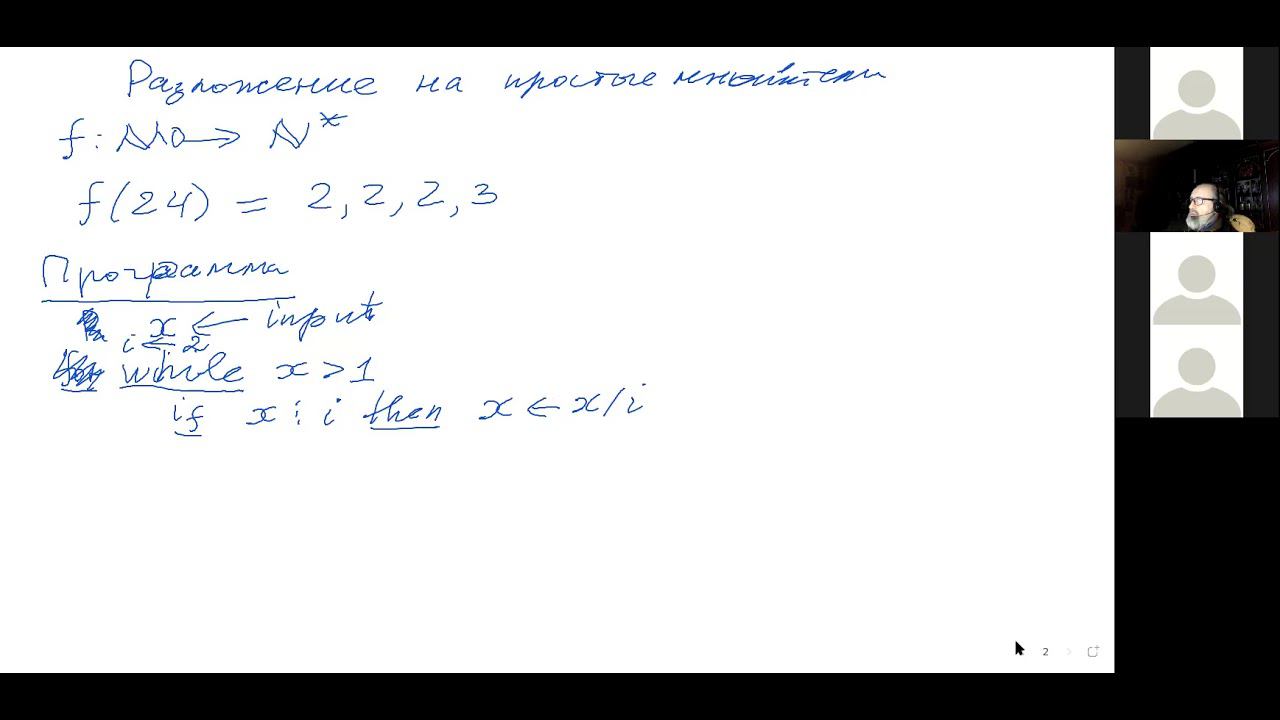 Разложение на простые множители
f: N → N*
f(24) = 2, 2, 2, 3
Программа
x ← input
i ← 2
while x > 1
if x ⋮ i then x ← x/i
2